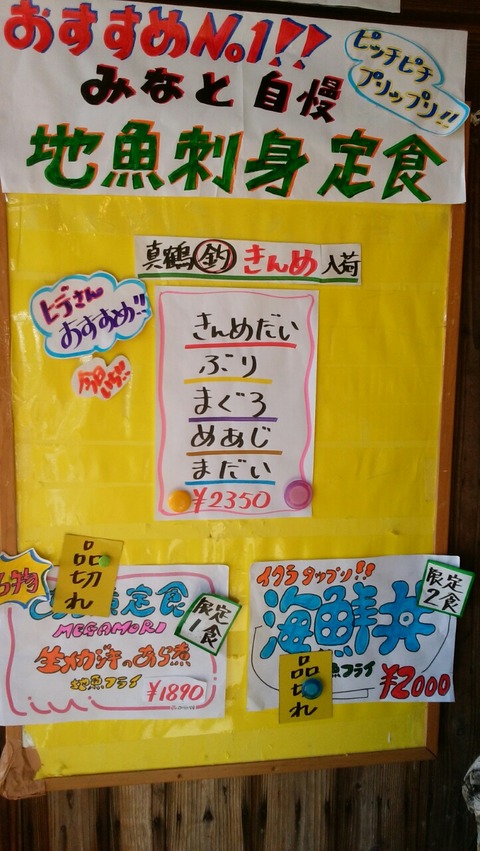 おすすめNo.1!!
ピッチピチ
プリップリ!!
みなと自慢
地魚刺身定食
真鶴釣きんめ入荷
ヒデさん
おすすめ!!
きんめだい
ぶり
まぐろ
めあじ
まだい
¥2350
品切れ
定食
限定
1食
MEGAMORI
あら煮
地魚フライ
¥1890
イクラタップリ!!
限定
2食
海鮮丼
品切れ
魚フライ
¥2000